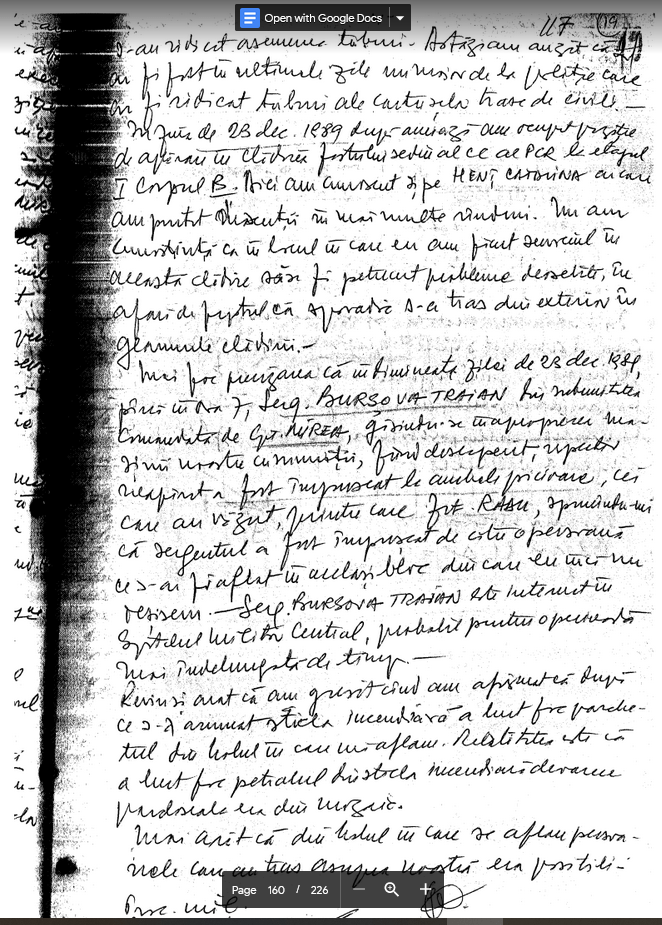 Open with Google Docs
117
119
s-au ridicat asemenea tuburi. Astăzi am auzit că
ar fi fost în ultimele zile un maior de la poliție care
ar fi ridicat tuburi ale cartușelor trase de civili. —
În ziua de 23 dec. 1989 după amiază am ocupat poziție
de apărare în clădirea fostului sediu al CC al PCR la etajul
I Corpul B. Aici am cunoscut și pe HENȚ CATALINA cu care
am purtat discuții în mai multe rânduri. Nu am
cunoștință ca în locul în care eu am făcut serviciul în
această clădire să se fi petrecut probleme deosebite, în
afară de faptul că sporadic s-a tras din exterior în
geamurile clădirii. —
Mai fac precizarea că în dimineața zilei de 23 dec. 1989,
până în ora 7, Serg. BURSOVA TRAIAN din subunitatea
comandată de Cpt. MIREA, găsindu-se în apropierea ma-
șinii noastre cu muniții, fiind descoperit, respectiv
neapărat a fost împușcat la ambele picioare, cei
care au văzut, printre care RADU, spunându-mi
că sergentul a fost împușcat de către o persoană
ce s-ar fi aflat în același bloc din care eu încă nu
ieșisem. — Serg. BURSOVA TRAIAN este internat în
Spitalul Militar Central, probabil pentru o perioadă
mai îndelungată de timp. —
Revin și arăt că am greșit când am afirmat că după
ce s-a aruncat sticla incendiară a luat foc parche-
tul din holul în care mă aflam. Realitatea este că
a luat foc petrolul din sticla incendiară deoarece
pardoseala era din mozaic.
Mai arăt că din holul în care se aflau persoa-
nele care au tras asupra noastră era posibili-
Proc. mil.
Page 160 / 226